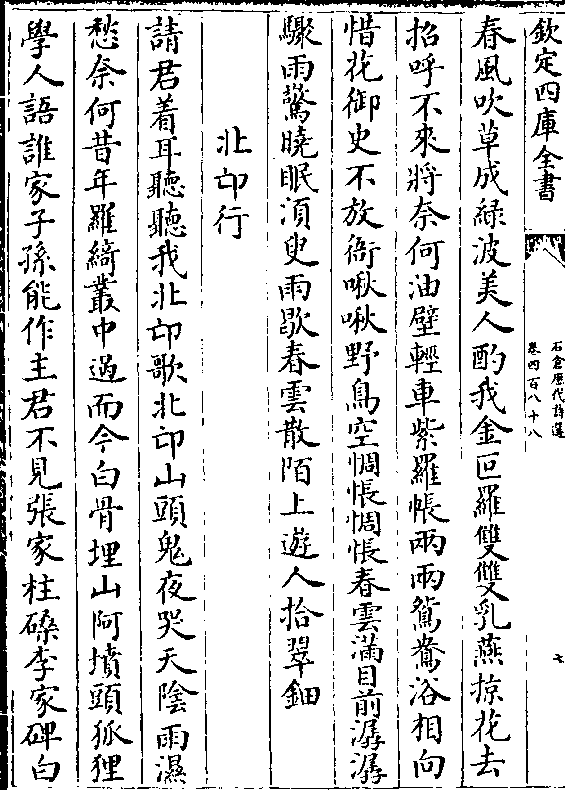 欽定四庫全書
石倉歷代詩選
卷四百八十八
七
春風吹草成緑波美人酌我金叵羅雙雙乳燕掠花去
招呼不來將奈何油壁輕車紫羅帳兩兩鴛鴦浴相向
惜花御史不放衙啾啾野鳥空惆悵惆悵春雲滿目前潺潺
驟雨驚曉眠湏臾雨歇春雲散陌上遊人拾翠鈿
北邙行
請君着耳聽聽我北邙歌北邙山頭鬼夜哭天隂雨濕
愁奈何昔年羅綺叢中過而今白骨埋山阿墳頭狐狸
學人語誰家子孫能作主君不見張家柱礎李家碑白